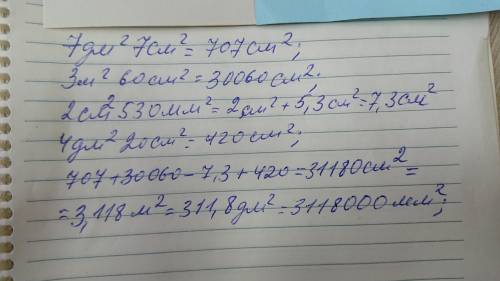 7дм² 7см² = 707см²;
3м² 60см² = 30060см²;
2см² 530мм² = 2см² + 5,3см² = 7,3см²
4дм² 20см² = 420см²;
707+30060-7,3+420=31180см² =
= 3,118м² = 311,8дм² = 3118000мм²;